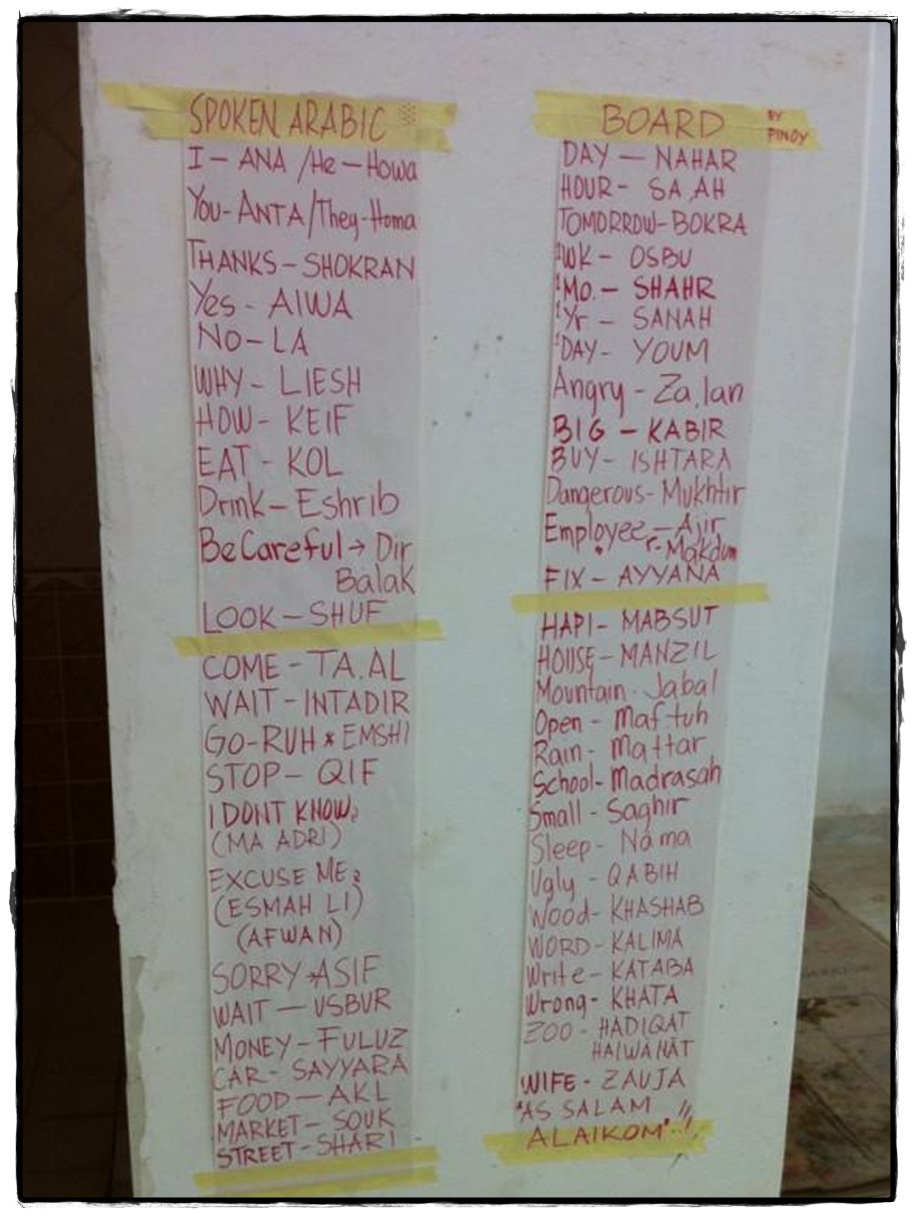 SPOKEN ARABIC
I - ANA / He - Howa
You - ANTA / They - Homa
THANKS - SHOKRAN
Yes - AIWA
NO - LA
WHY - LIESH
HOW - KEIF
EAT - KOL
Drink - Eshrib
Be Careful → Dir
Balak
LOOK - SHUF
COME - TA.AL
WAIT - INTADIR
GO - RUH * EMSHI
STOP - QIF
I DONT KNOW?
(MA ADRI)
EXCUSE ME?
(ESMAH LI)
(AFWAN)
SORRY → ASIF
WAIT - USBUR
MONEY - FULUZ
CAR - SAYYARA
FOOD - AKL
MARKET - SOUK
STREET - SHARI
BOARD BY
PINOY
DAY - NAHAR
HOUR - SA,AH
TOMORROW - BOKRA
1WK - OSBU
1Mo. - SHAHR
1Yr - SANAH
1DAY - YOUM
Angry - Za,lan
BIG - KABIR
BUY - ISHTARA
Dangerous - Mukhtir
Employee - Ajir
r - Makdum
FIX - AYYANA
HAPI - MABSUT
HOUSE - MANZIL
Mountain - Jabal
Open - Maftuh
Rain - Mattar
School - Madrasah
Small - Saghir
Sleep - Nama
Ugly - QABIH
Wood - KHASHAB
WORD - KALIMA
Write - KATABA
Wrong - KHATA
ZOO - HADIQAT
HAIWANAT
WIFE - ZAUJA
"AS SALAM
ALAIKOM"..!!